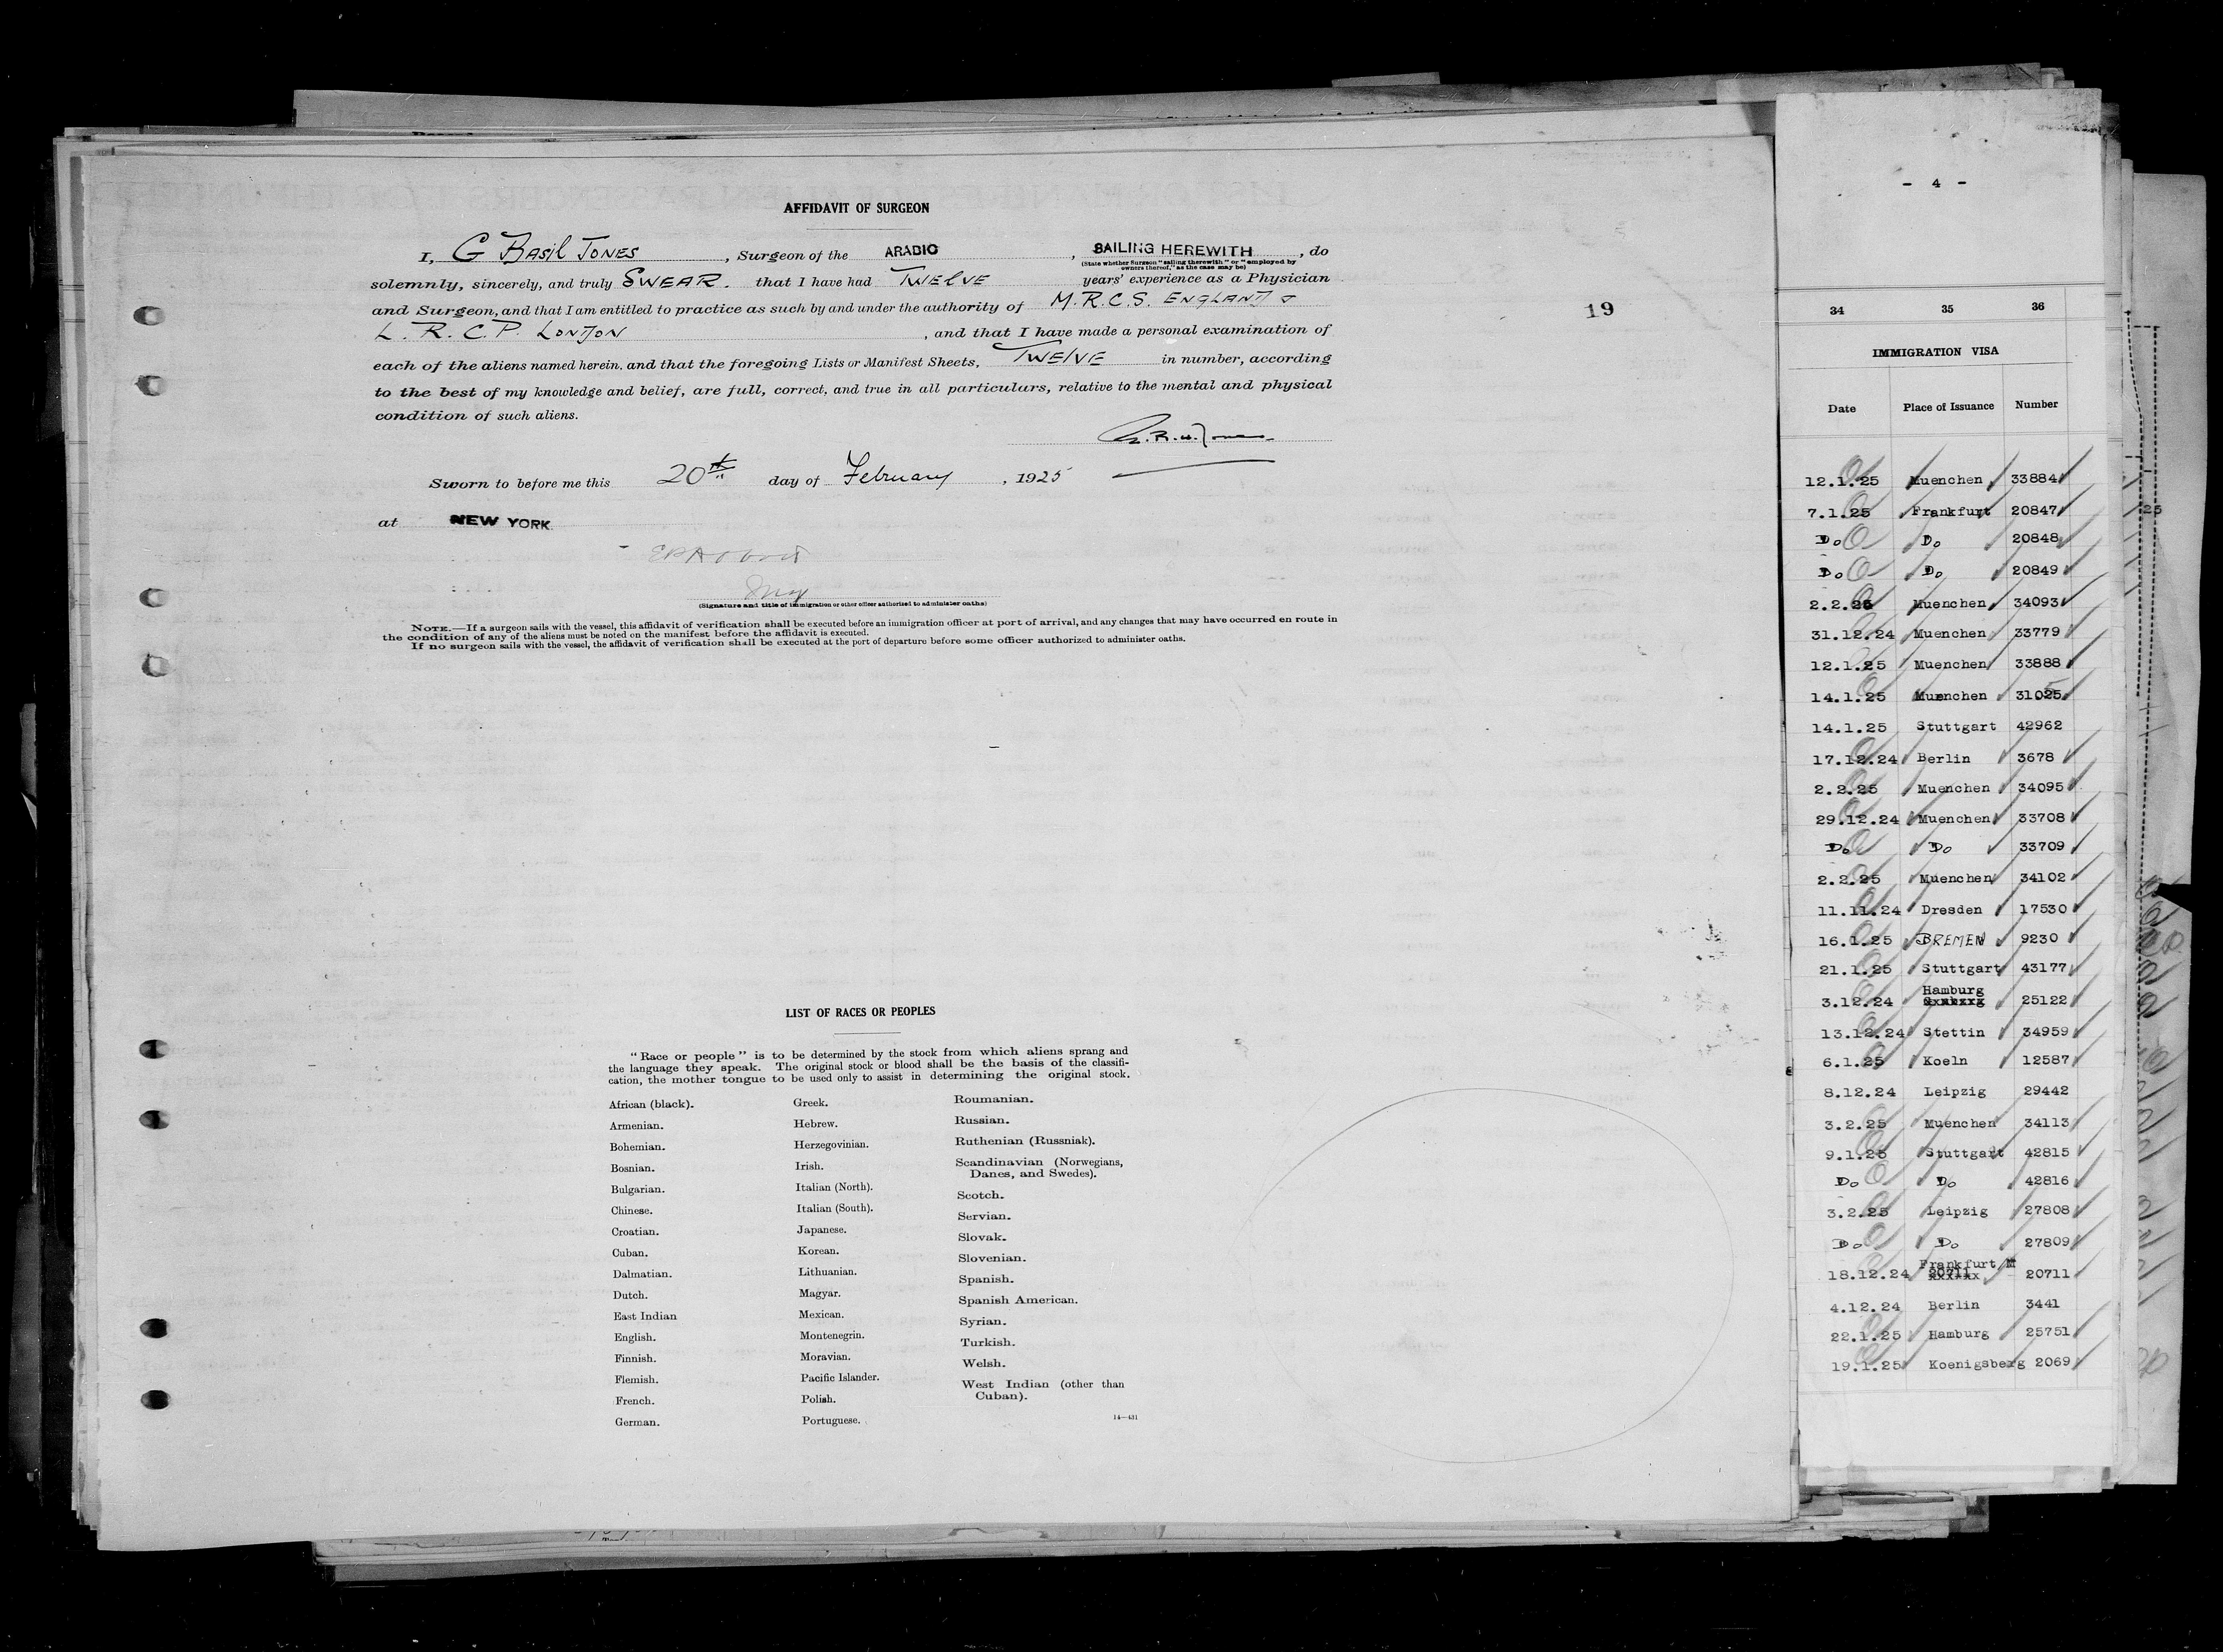 AFFIDAVIT OF SURGEON
I, G Basil Jones, Surgeon of the ARABIC, SAILING HEREWITH, do
(State whether Surgeon "sailing therewith" or "employed by
owners thereof," as the case may be)
solemnly, sincerely, and truly SWEAR. that I have had TWELVE years' experience as a Physician
and Surgeon, and that I am entitled to practice as such by and under the authority of M.R.C.S. ENGLAND &
L.R.C.P. LONDON, and that I have made a personal examination of
each of the aliens named herein, and that the foregoing Lists or Manifest Sheets, TWELVE in number, according
to the best of my knowledge and belief, are full, correct, and true in all particulars, relative to the mental and physical
condition of such aliens.
Sworn to before me this 20th day of February, 1925
at NEW YORK
(Signature and title of immigration or other officer authorized to administer oaths)
NOTE.—If a surgeon sails with the vessel, this affidavit of verification shall be executed before an immigration officer at port of arrival, and any changes that may have occurred en route in
the condition of any of the aliens must be noted on the manifest before the affidavit is executed.
If no surgeon sails with the vessel, the affidavit of verification shall be executed at the port of departure before some officer authorized to administer oaths.
19
LIST OF RACES OR PEOPLES
"Race or people" is to be determined by the stock from which aliens sprang and
the language they speak. The original stock or blood shall be the basis of the classifi-
cation, the mother tongue to be used only to assist in determining the original stock.
African (black).
Armenian.
Bohemian.
Bosnian.
Bulgarian.
Chinese.
Croatian.
Cuban.
Dalmatian.
Dutch.
East Indian
English.
Finnish.
Flemish.
French.
German.
Greek.
Hebrew.
Herzegovinian.
Irish.
Italian (North).
Italian (South).
Japanese.
Korean.
Lithuanian.
Magyar.
Mexican.
Montenegrin.
Moravian.
Pacific Islander.
Polish.
Portuguese.
Roumanian.
Russian.
Ruthenian (Russniak).
Scandinavian (Norwegians,
Danes, and Swedes).
Scotch.
Servian.
Slovak.
Slovenian.
Spanish.
Spanish American.
Syrian.
Turkish.
Welsh.
West Indian (other than
Cuban).
14—431
- 4 -
34 35 36
IMMIGRATION VISA
Date Place of Issuance Number
12.1.25 Muenchen 33884
7.1.25 Frankfurt 20847
Do Do 20848
Do Do 20849
2.2.25 Muenchen 34093
31.12.24 Muenchen 33779
12.1.25 Muenchen 33888
14.1.25 Muenchen 31025
14.1.25 Stuttgart 42962
17.12.24 Berlin 3678
2.2.25 Muenchen 34095
29.12.24 Muenchen 33708
Do Do 33709
2.2.25 Muenchen 34102
11.11.24 Dresden 17530
16.1.25 BREMEN 9230
21.1.25 Stuttgart 43177
3.12.24 Hamburg 25122
13.12.24 Stettin 34959
6.1.25 Koeln 12587
8.12.24 Leipzig 29442
3.2.25 Muenchen 34113
9.1.25 Stuttgart 42815
Do Do 42816
3.2.25 Leipzig 27808
Do Do 27809
18.12.24 Frankfurt/M 20711
4.12.24 Berlin 3441
22.1.25 Hamburg 25751
19.1.25 Koenigsberg 2069